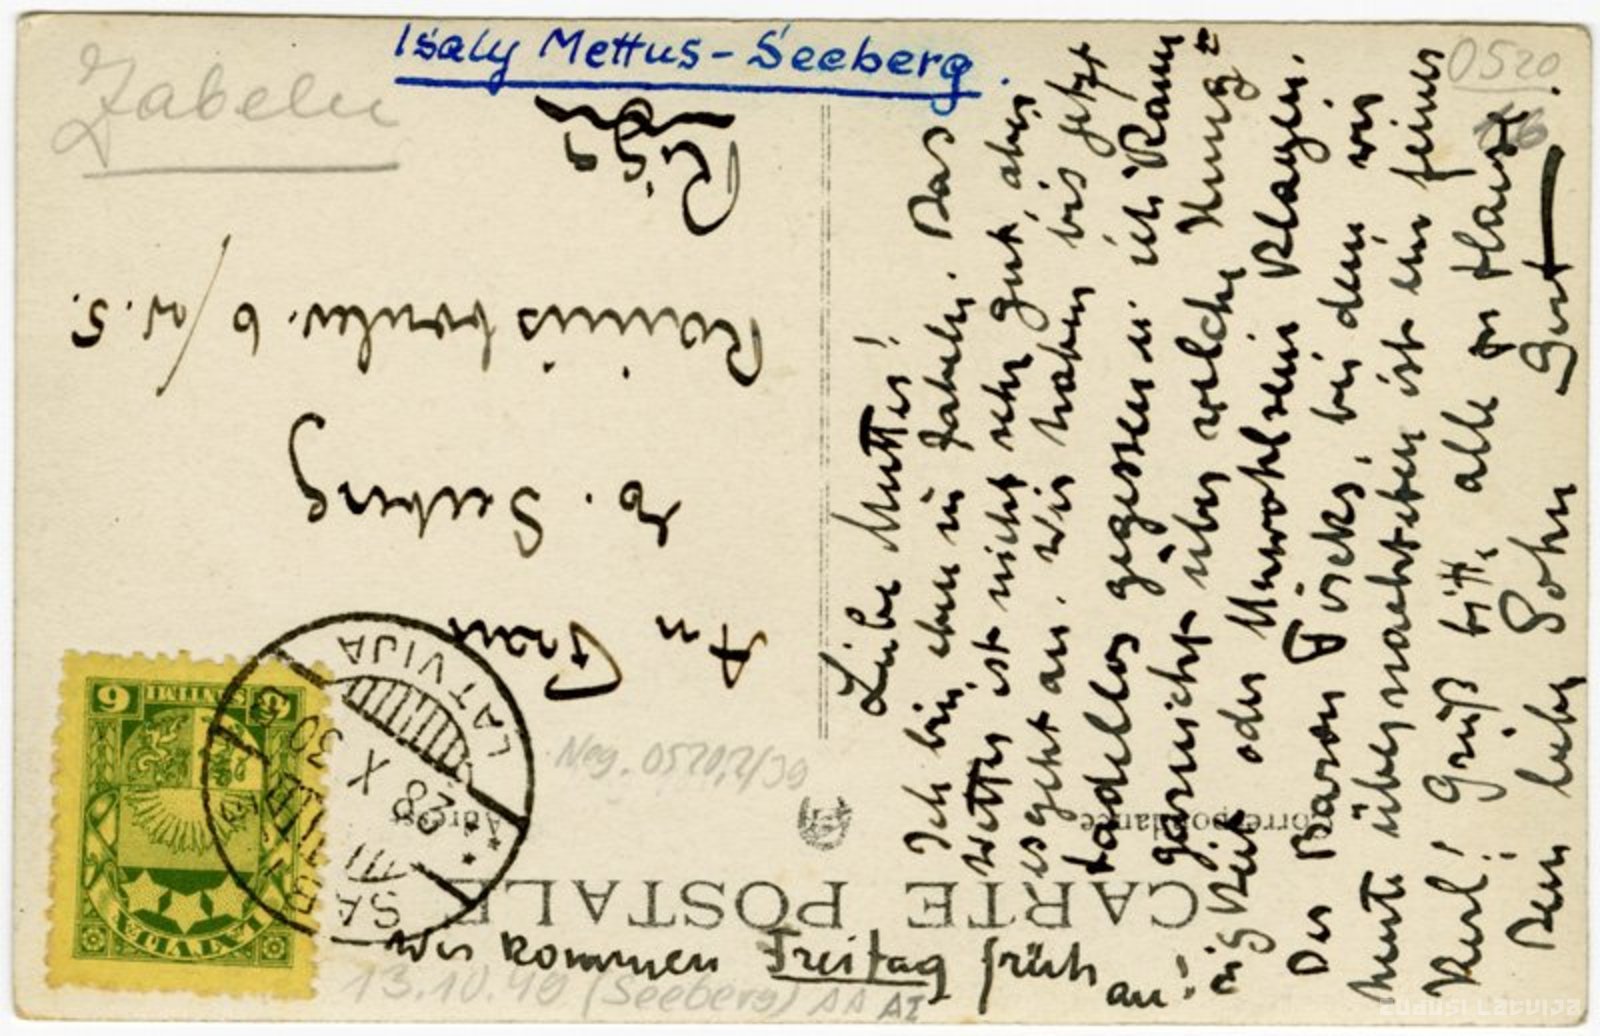 Isaly Mettus-Seeberg.
Zabeln
0520
16
CARTE POSTALE
Correspondance
Adresse
LATVIJA
6 SANTIMI 6
LATVIJA
SABILE
28 X 30
An Frau
E. Seeberg
Rainis boulev. 6/W. 5.
Riga
Liebe Mutter!
Ich bin eben in Zabeln. Das
Wetter ist nicht sehr gut, aber
es geht an. Wir haben bis jetzt
tadellos gegessen u. ich kann
garnicht über welche Hung-
rigkeit oder Unwohlsein klagen.
Der Baron Fircks, bei dem wir
heute übernachteten ist ein feiner
Kerl! Grüß bitte alle zu Hause.
Dein lieber Sohn Gert
Wir kommen Freitag früh
an!
Neg. 0520,2/39
13.10.40 (Seeberg) AA AI
ZUDUSI LATVIJA